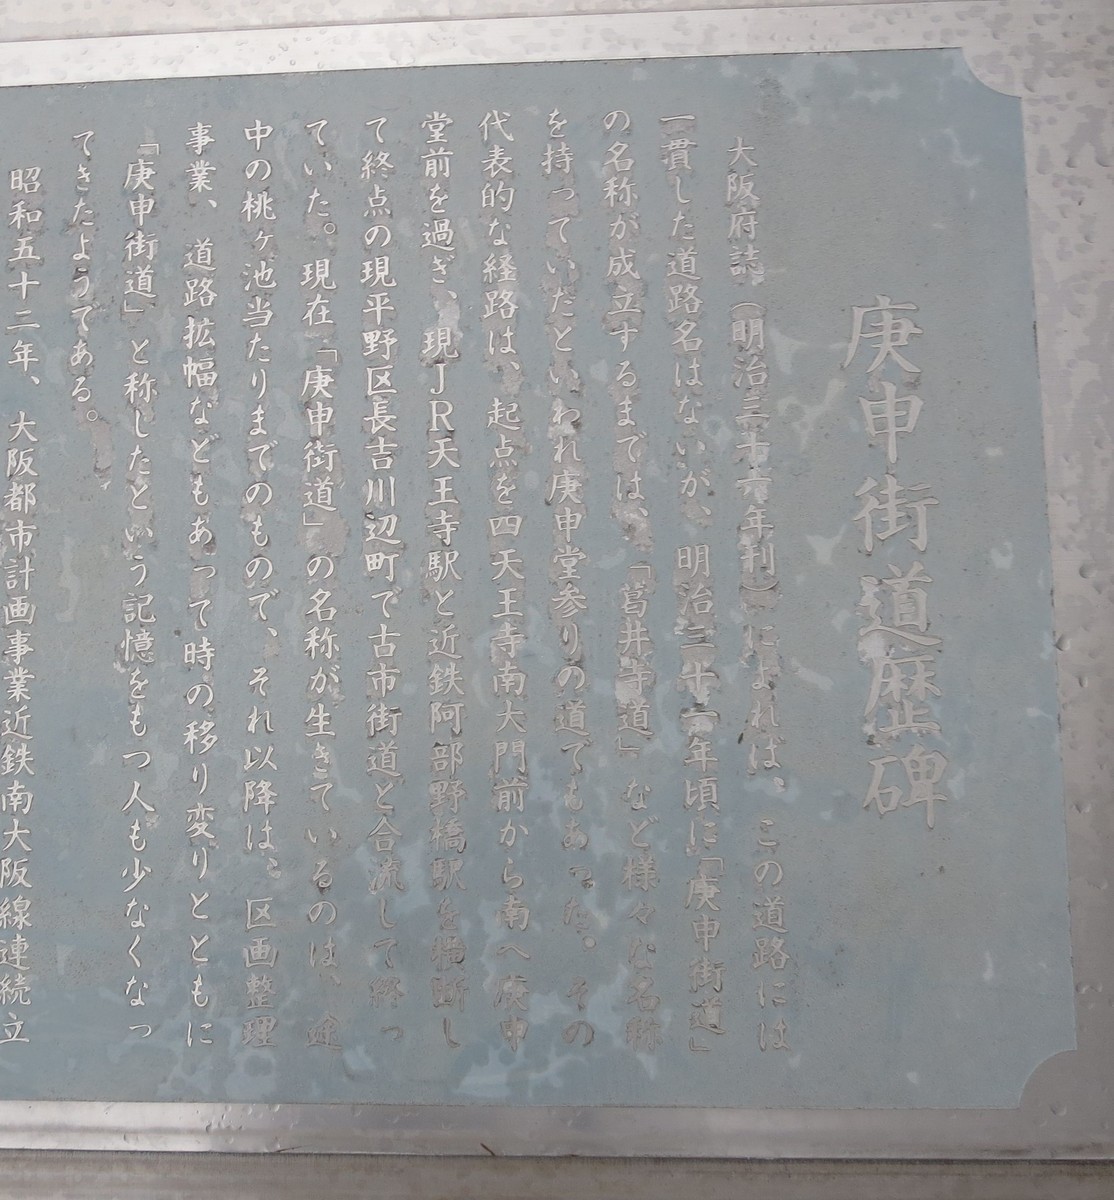 庚申街道歴碑
大阪府誌(明治三十六年刊)によれば、この道路には
一貫した道路名はないが、明治三十一年頃に「庚申街道」
の名称が成立するまでは、「葛井寺道」など様々な名称
を持っていたといわれ庚申堂参りの道でもあった。その
代表的な経路は、起点を四天王寺南大門前から南へ庚申
堂前を過ぎ、現JR天王寺駅と近鉄阿部野橋駅を横断し
て終点の現平野区長吉川辺町で古市街道と合流して終っ
ていた。現在「庚申街道」の名称が生きているのは、途
中の桃ヶ池当たりまでのもので、それ以降は、区画整理
事業、道路拡幅などもあって時の移り変りとともに
「庚申街道」と称したという記憶をもつ人も少なくなっ
てきたようである。
昭和五十二年、大阪都市計画事業近鉄南大阪線連続立